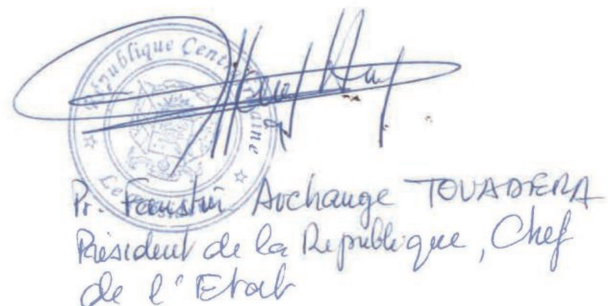 République Centrafricaine
Pr. Faustin Archange TOUADERA
Président de la République, Chef
de l'Etat